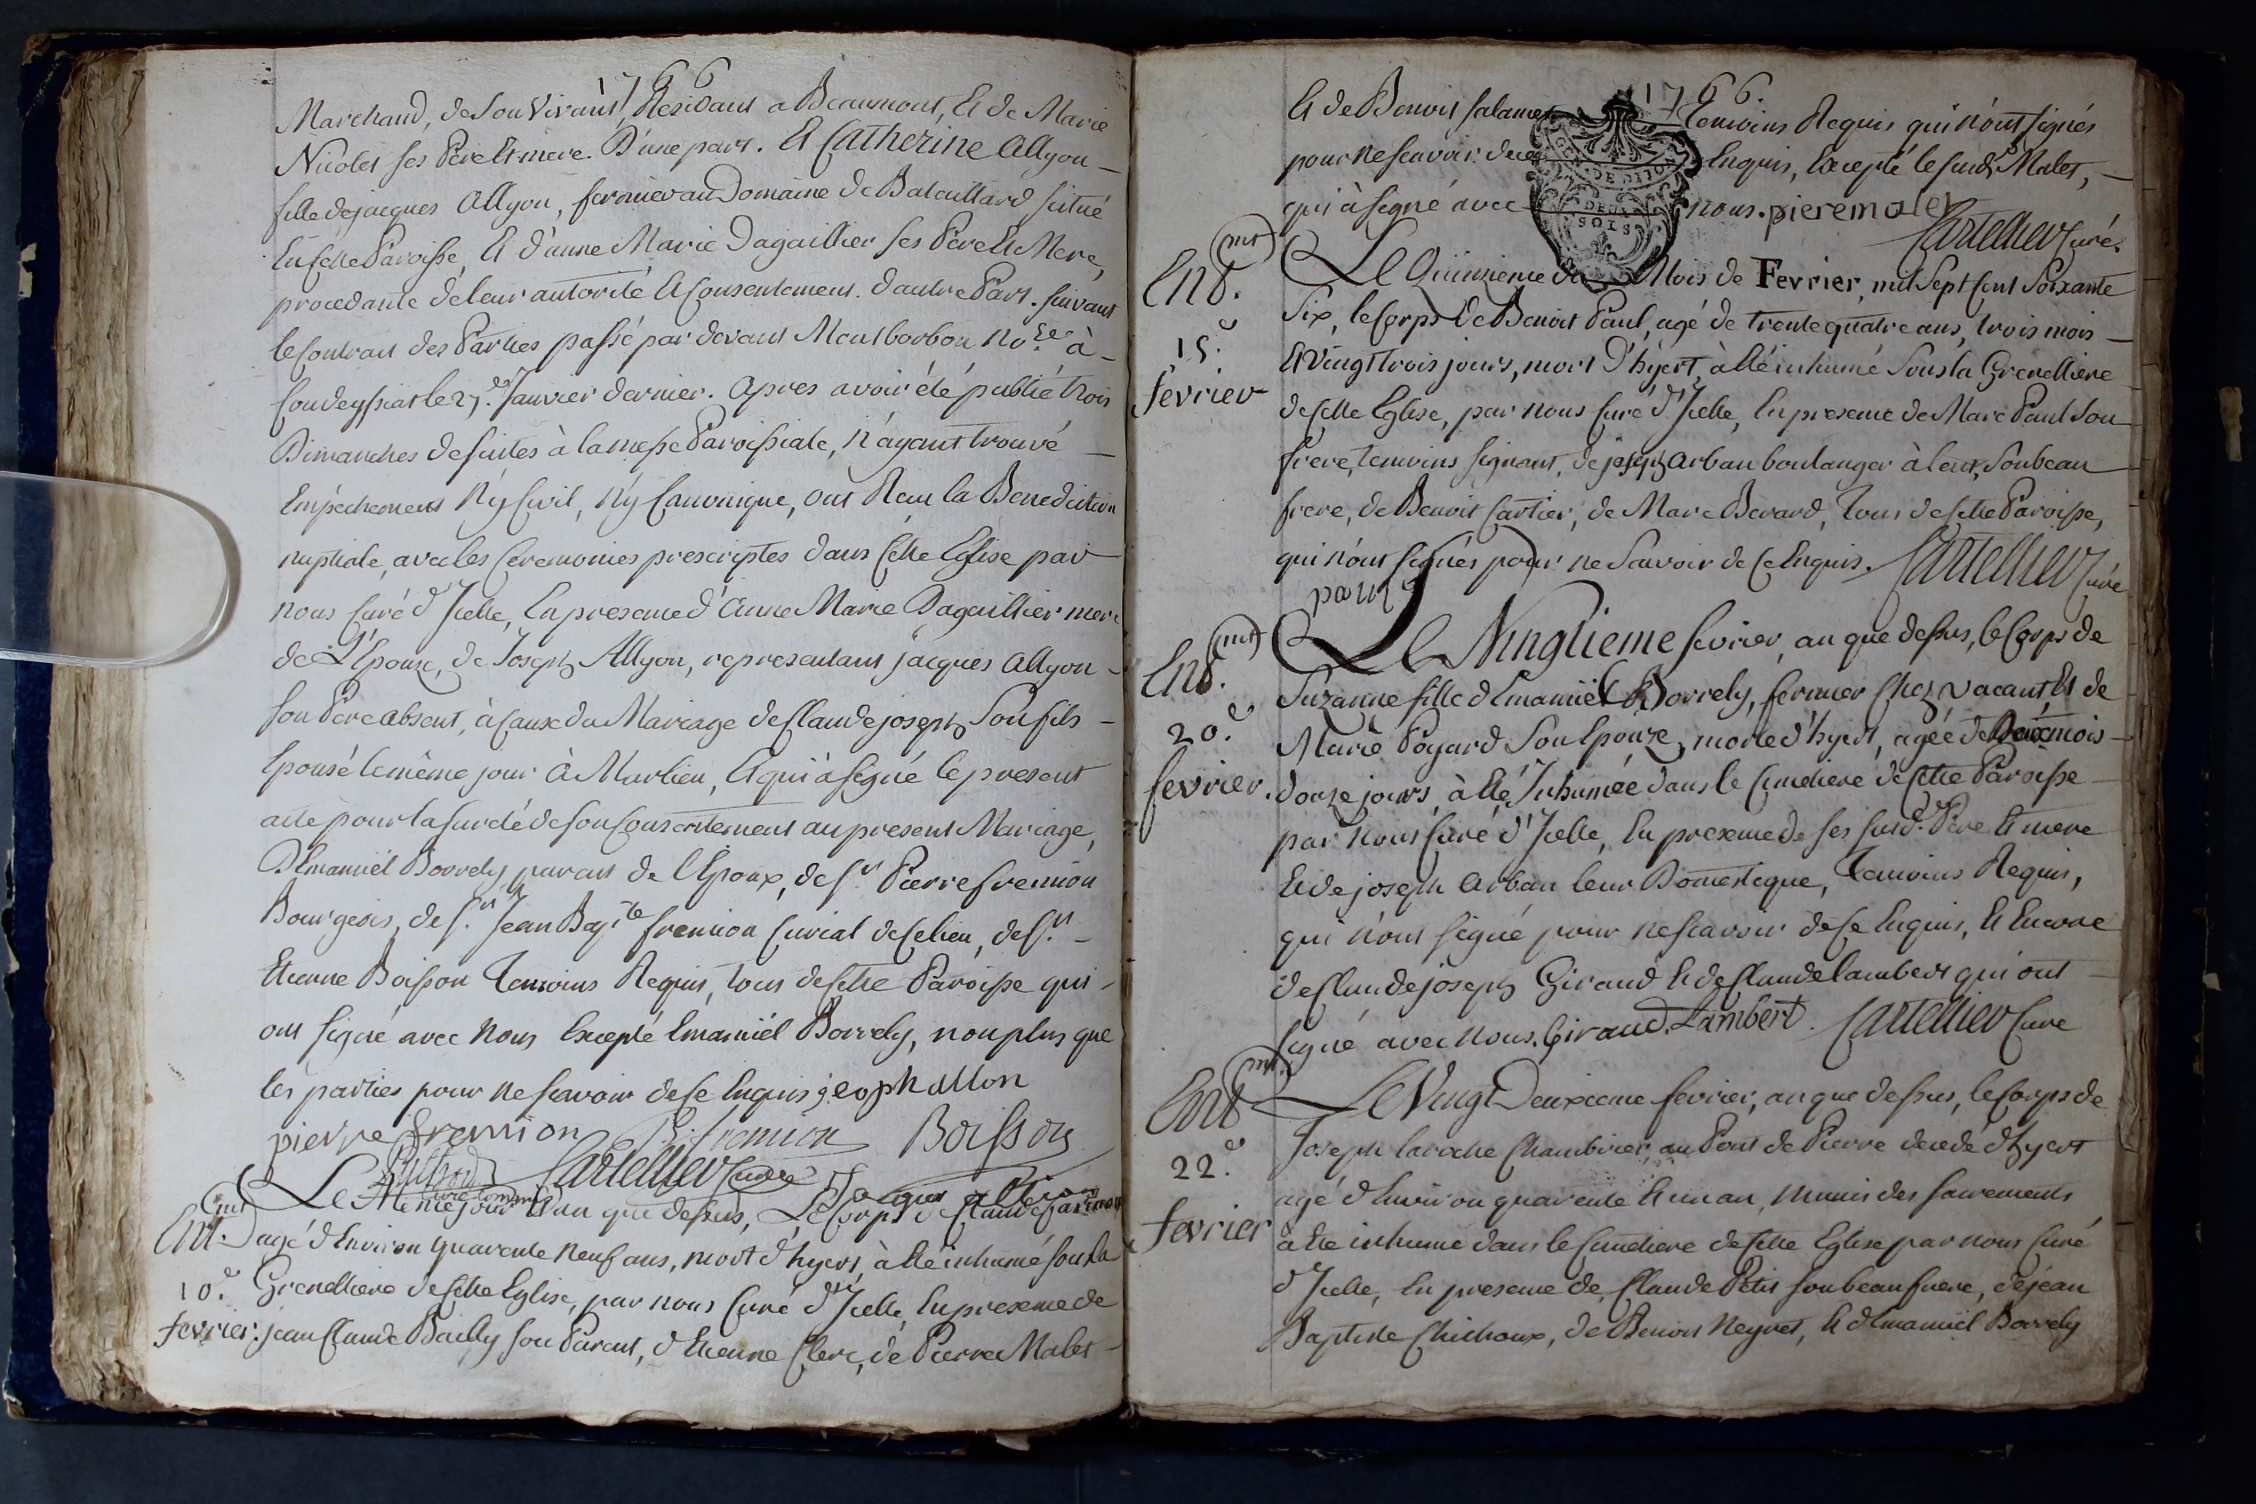 1766
Marchand, de son Vivant, Residant a Beaumont, Et de Marie
Nicolet ses Pere Et mere. D'une part. Et Catherine Allyon
fille de jacques Allyon, fermier au Domaine de Bataillard situé
En Cette Paroisse, Et d'anne Marie Dagaillier ses Pere Et Mere,
procedante de leur autorité Et Consentement. d'autre Part. suivant
le Contrat des Parties passé par devant Montbarbon No.re à
Condeyssiat le 27.e Janvier dernier. Apres avoir été publié trois
Dimanches de suites à la messe Paroissiale, N'ayant trouvé
Empêchement Ny Civil, Ny Cannonique, ont Recu la Benediction
nuptiale, avec les Ceremonies prescriptes dans Cette Eglise par
nous Curé d'Icelle, En presence d'Anne Marie Dagaillier mere
de L'Epouse, de Joseph Allyon, representant jacques Allyon
son Pere absent, à Cause du Mariage de Claude joseph Son fils
Epousé le même jour à Marlieu, Et qui à signé le present
acte pour la surdé de son Consentement au present Mariage,
D'Emanuël Borrely parent de l'Epoux, de S.r Pierre fremion
Bourgeois, de S.r Jean Bap.te fremion Curial de Ce lieu, de S.r
Etienne Boisson Temoins Requis, tous de Cette Paroisse qui
ont signé avec Nous Excepté Emanuël Borrely, non plus que
les parties pour ne scavoir de Ce Enquis jeoph allon
pierre fremion fremion Boisson
Cartellier Curé
Jaques allion
Ent.mt
10.e
fevrier
Le Même jour Et an que dessus, Le Corps de Claude
agé d'Environ quarente neuf ans, mort d'hyert, à Eté inhumé sous la
Grenettiere de Cette Eglise, par nous Curé d'Icelle, En presence de
jean Claude Bailly son Parent, d'Etienne Clerc, de Pierre Malet
1766.
Et de Benoit Salamet Temoins Requis qui n'ont signés
pour ne scavoir de ce Enquis, Excepté le susd. Malet,
qui à signé avec nous. piere malet
Cartellier Curé.
GEN. DE DIJON
DEUX
SOLS
Ent.mt
15.e
fevrier
Le Quinzieme du Mois de Fevrier, mil Sept Cent Soixante
Six, le Corps de Benoit Paul, agé de trente quatre ans, trois mois
Et Vingt trois jours, mort D'hyert, à Eté inhumé Sous la Grenettiere
de Cette Eglise, par nous Curé d'Icelle, En presence de Marc Paul Son
frere, temoins signant, de joseph Arban boulanger à Lent, Son beau
frere, de Benoit Cartier, de Marc Berard, Tous de Cette Paroisse,
qui n'ont signés pour ne Scavoir de Ce Enquis. Cartellier Curé
paul
Ent.mt
20.e
fevrier.
Le Vingtieme fevrier, an que dessus, le Corps de
Suzanne fille d'Emanuël Borrely, fermier Chez Vacant, Et de
Marie Poyard Son Epouze, morte d'hyert, agée de Deux mois
douze jours, à Eté Inhumée dans le Cimetiere de Cette Paroisse
par Nous Curé d'Icelle, En presence de ses susd. Pere Et mere
Et de joseph Arban leur Domestique, Temoins Requis,
qui n'ont signé pour ne scavoir de Ce Enquis, Et Encore
de Claude joseph Giraud Et de Claude Lambert qui ont
signé avec nous. Giraud. Lambert. Cartellier Curé
Ent.mt
22.e
fevrier
Le Vingt Deuxieme fevrier, an que dessus, le Corps de
Joseph Laroche Chambrier au Pont de Pierre decedé d'hyert
agé d'Environ quarente Et un an, munis des sacrements
à Eté inhumé dans le Cimetiere de Cette Eglise par nous Curé
d'Icelle, En presence de Claude Petit son beau frere, de jean
Baptiste Chichoux, de Benoit Neyret, Et d'Emanuël Borrely